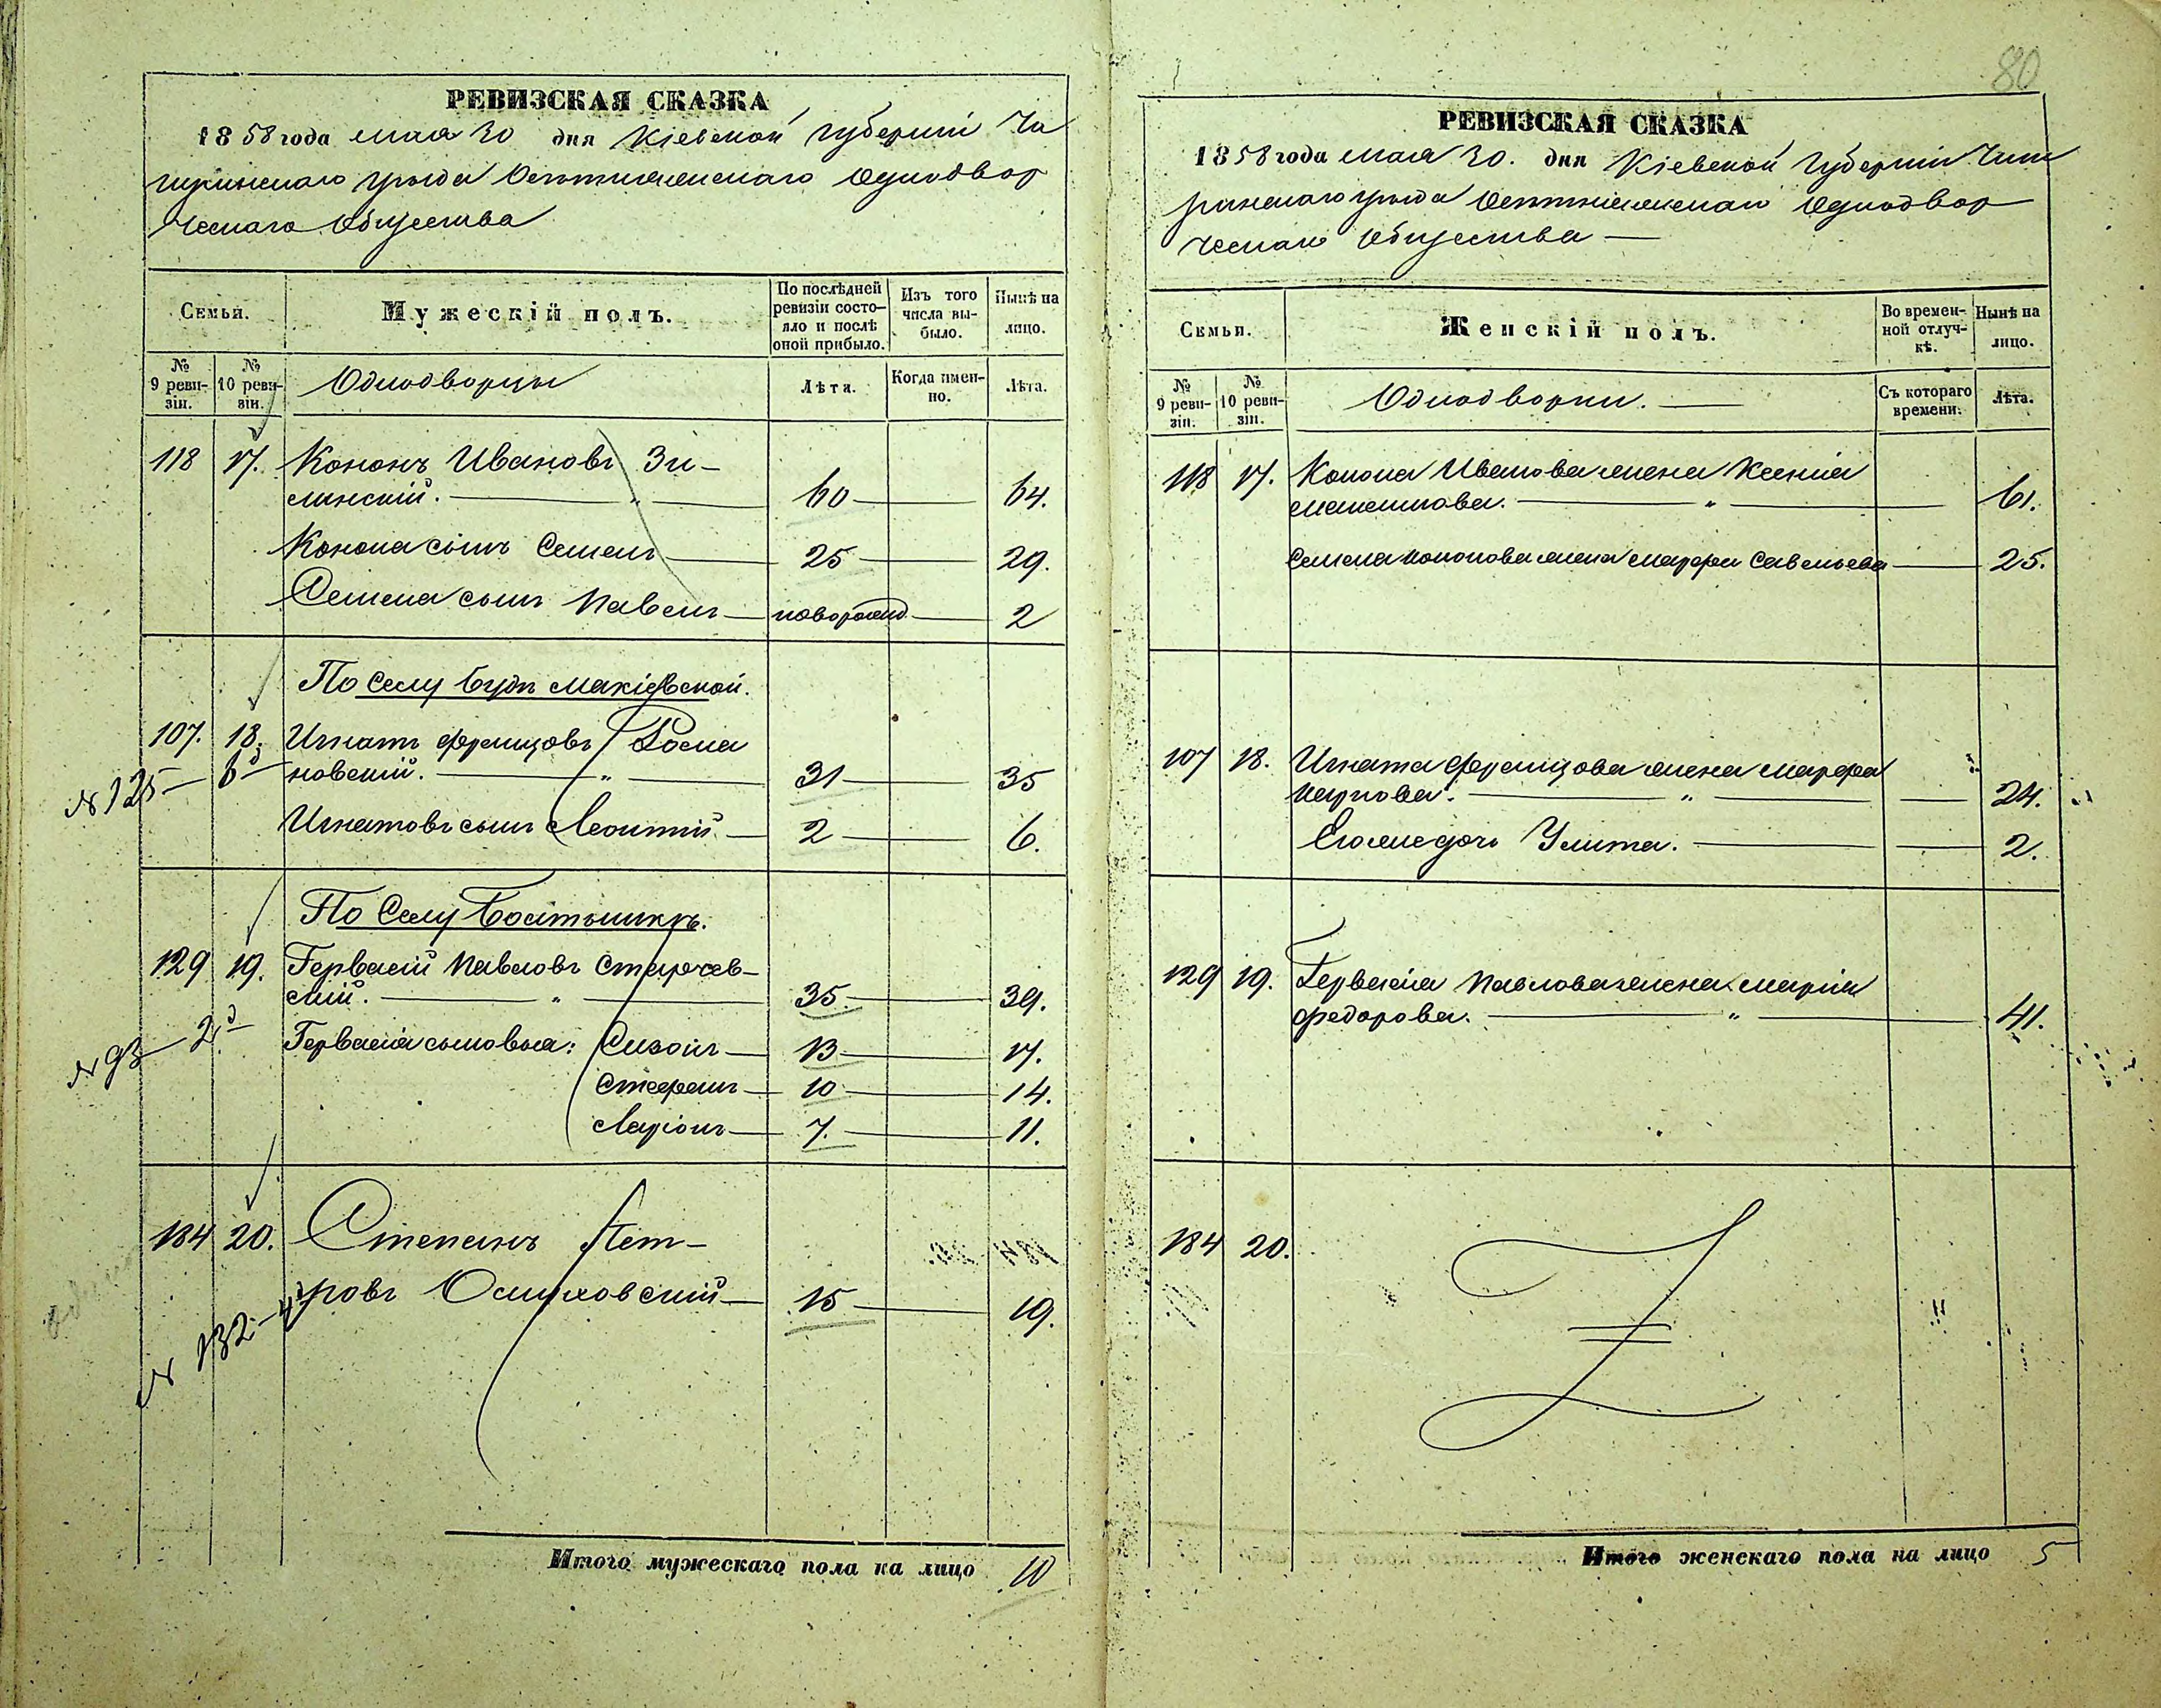 80
РЕВИЗСКАЯ СКАЗКА
1858 года мая 30 дня Кіевской губерніи Чи
гиринскаго уѣзда одноdвор
ческаго общества
Семьи.
Мужескій полъ.
По послѣдней ревизіи состояло и послѣ оной прибыло.
Изъ того числа выбыло.
Нынѣ на лицо.
№ 9 ревизіи.
№ 10 ревизіи.
Однодворцы
Лѣта.
Когда именно.
Лѣта.
118 17. Кононъ Ивановъ Зи-
линскій. — " — 60 — 64.
Конона сынъ Семенъ — 25 — 29.
Семена сынъ Павелъ — новорожд. — 2
По селу Будѣ Макіевской.
107. 18. Игнатъ Францовъ Росца
новскій. — " — 31 — 35
№ 125 — 6
Игнатовъ сынъ Леонтій — 2 — 6.
По селу
129 19. Гервасій Павловъ Старчев-
скій. — " — 35 — 39.
№ 93 — 2
Гервасія сыновья: Сизонъ — 13 — 17.
Стефанъ — 10 — 14.
Ларіонъ — 7. — 11.
184 20. Степанъ Пет-
ровъ Осмуховскій — 15 — 19.
№ 132 — 4
Итого мужескаго пола на лицо 10
РЕВИЗСКАЯ СКАЗКА
1858 года мая 30. дня Кіевской губерніи Чиги
ринскаго уѣзда однодвор
ческаго общества —
Семьи.
Женскій полъ.
Во временной отлучкѣ.
Нынѣ на лицо.
№ 9 ревизіи.
№ 10 ревизіи.
Однодворки. —
Съ котораго времени.
Лѣта.
118 17. Конона Иванова жена Ксенія
— " — 61.
Семена Кононова жена Марфа Савельева — 25.
107 18. Игната Францова жена Марфа
Карпова. — " — 24.
Его же дочь Улита. — 2.
129 19. Гервасія Павлова жена Марія
Федорова. — " — 41.
184 20.
Итого женскаго пола на лицо 5